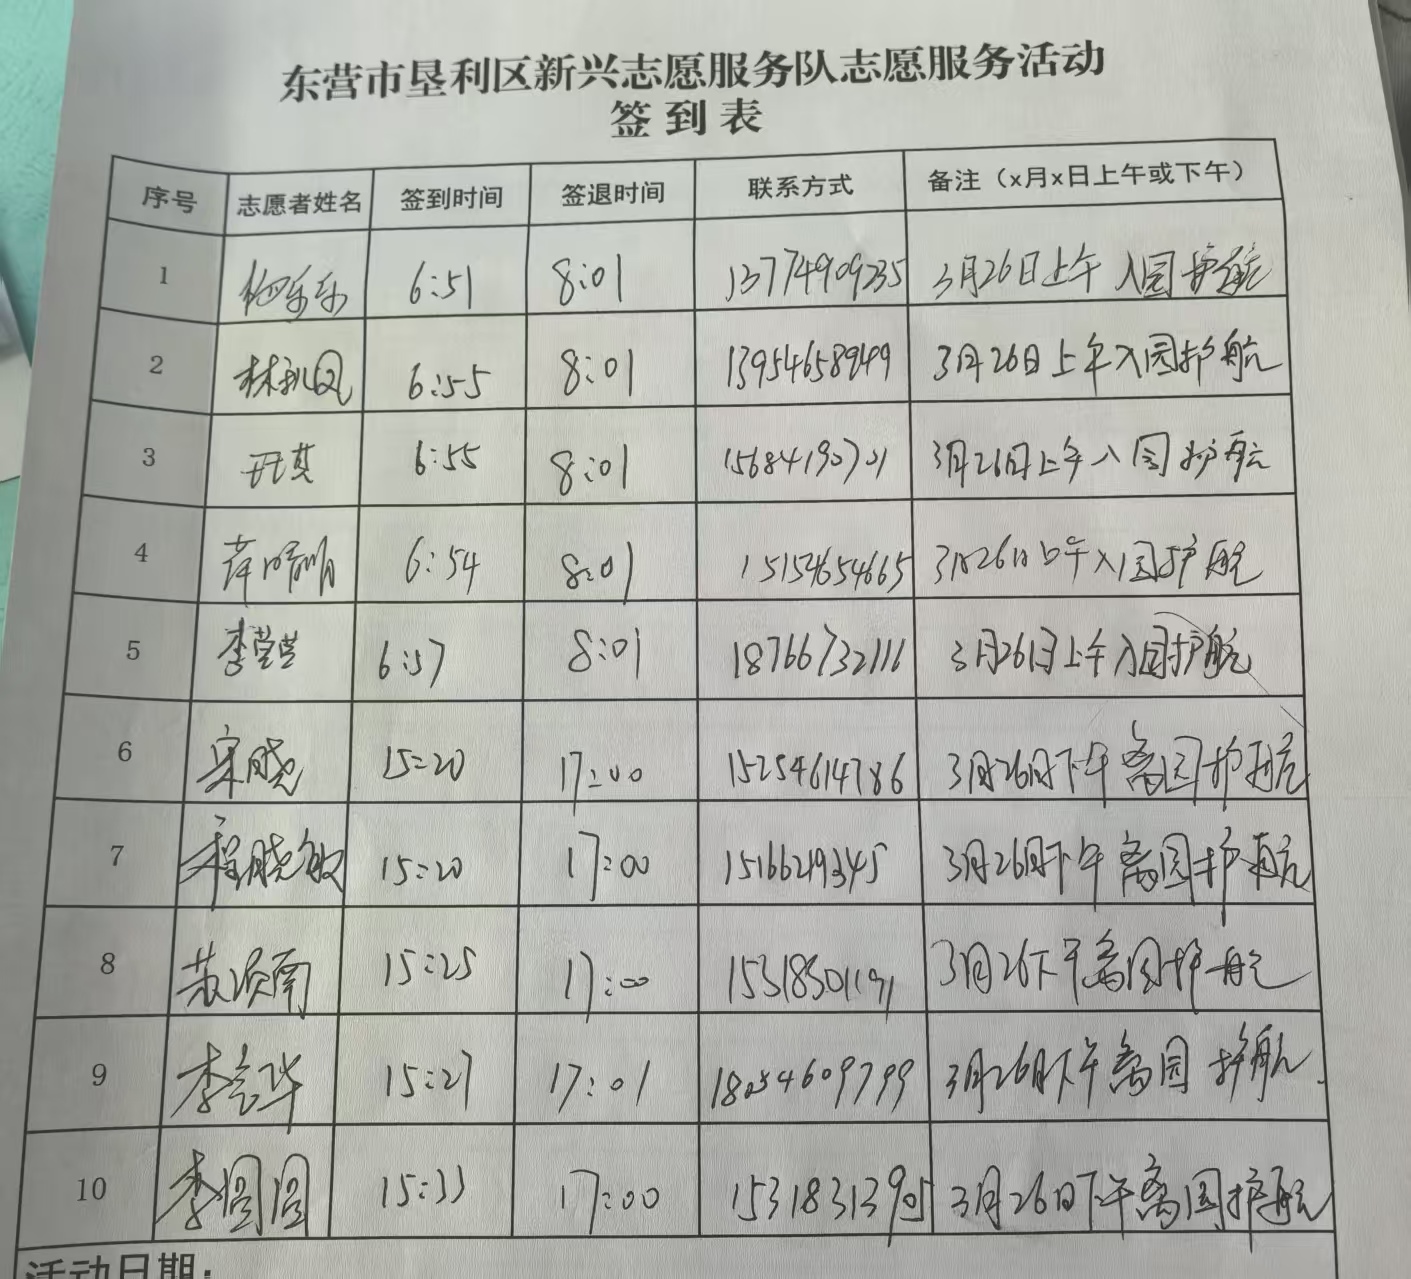 东营市垦利区新兴志愿服务队志愿服务活动
签到表
序号 志愿者姓名 签到时间 签退时间 联系方式 备注（x月x日上午或下午）
1 6:51 8:01 13774909235 3月26日上午 入园护航
2 林凤 6:55 8:01 13954658949 3月26日上午入园护航
3 6:55 8:01 15684190701 3月26日上午入园护航
4 薛晴晴 6:54 8:01 15154654665 3月26日上午入园护航
5 李莹莹 6:57 8:01 18766732111 3月26日上午入园护航
6 宋晓 15:20 17:00 15254614786 3月26日下午离园护航
7 程晓敏 15:20 17:00 15166219345 3月26日下午离园护航
8 苏须南 15:25 17:00 15318301191 3月26下午离园护航
9 李华 15:27 17:01 18054609799 3月26日下午离园护航.
10 李圆圆 15:33 17:00 15318313905 3月26日下午离园护航
活动日期：